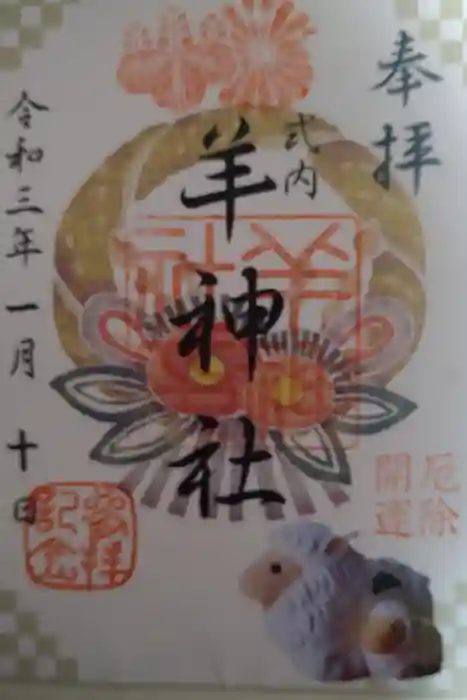 奉拝
式内
羊神社
羊神社
令和三年一月十日
厄除
開運
参拝
記念